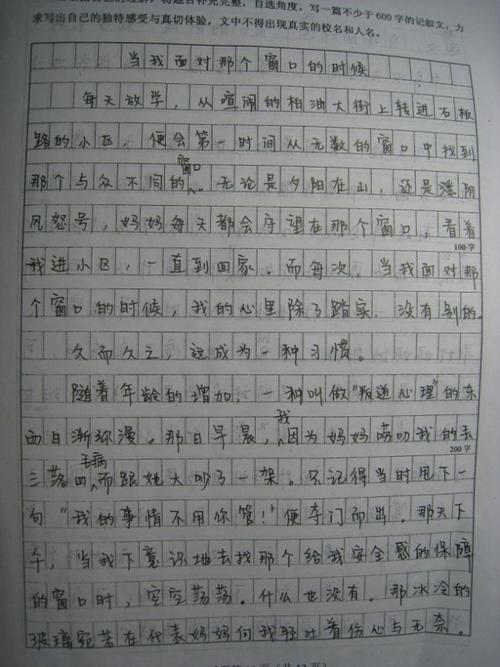 将题目补充完整，自选角度，写一篇不少于 600 字的记叙文，力
求写出自己的独特感受与真切体验，文中不得出现真实的校名和人名。
当我面对那个窗口的时候
每天放学，从喧闹的柏油大街上转进石板
路的小区，便会第一时间从无数的窗口中找到
那个与众不同的窗口。无论是夕阳在山，还是
风怒号，妈妈每天都会守望在那个窗口，看着
100字
我进小区，一直到回家。而每次，当我面对那
个窗口的时候，我的心里除了踏实，没有别的。
久而久之，这成为一种习惯。
随着年龄的增加，一种叫做“叛逆心理”的东
西日渐弥漫。那日早晨，我因为妈妈唠叨我的丢
200字
三落四毛病而跟她大吵了一架。只记得当时甩下一
句“我的事情不用你管！”便夺门而出。那天下
午，当我下意识地去找那个给我安全感的保障
的窗口时，空空荡荡。什么也没有。那冰冷的
玻璃宛若在代表妈妈向我轻吐着伤心与无奈。